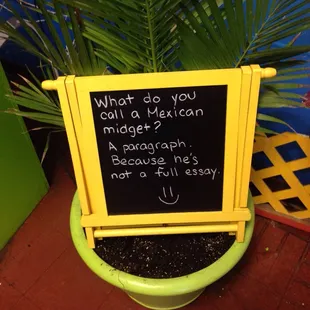 What do you
call a Mexican
midget?
A paragraph.
Because he's
not a full essay.